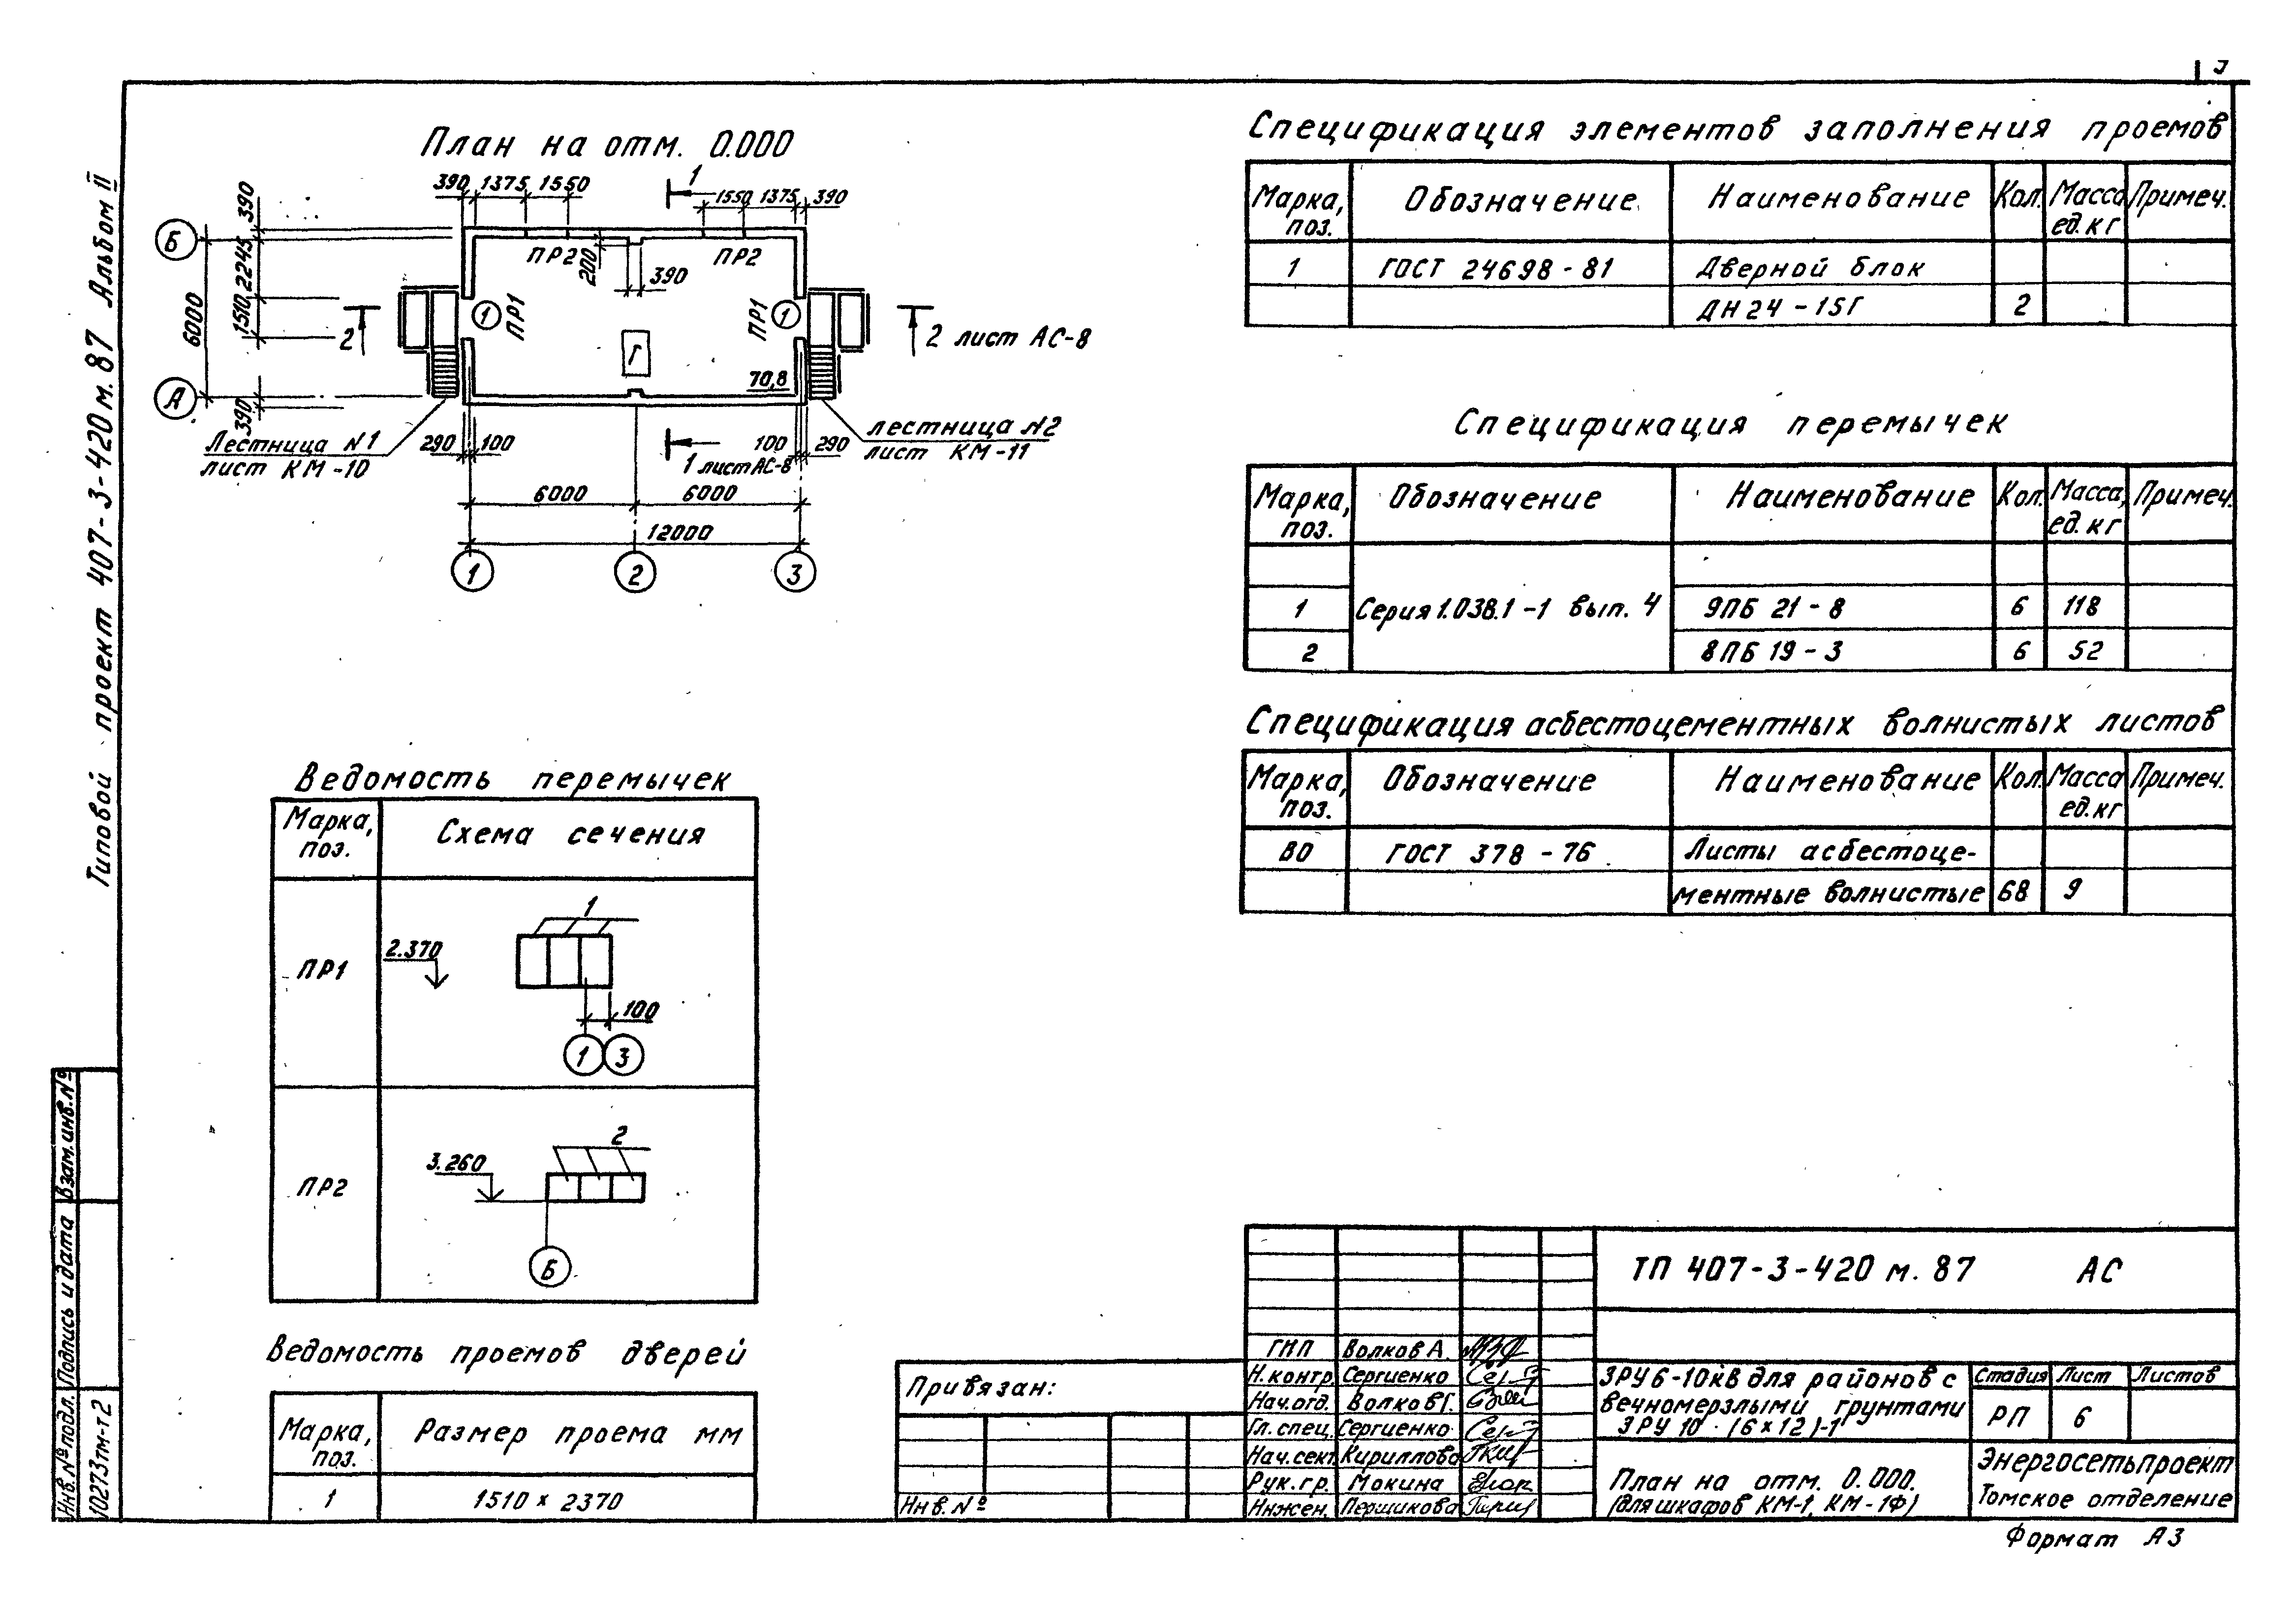 План на отм. 0.000
390 1375 1550
1
1550 1375 390
Б
390
2245
1510
6000
390
А
ПР2
200
390
ПР2
1
ПР1
ПР1
1
2
2 лист АС-8
Г
70,8
Лестница N1
лист КМ-10
290 100
1 лист АС-8
100 290
лестница N2
лист КМ-11
6000 6000
12000
1 2 3
Типовой проект 407-3-420м.87 Альбом II
Ведомость перемычек
Марка, поз. Схема сечения
ПР1
2.370
1
100
1 3
ПР2
3.260
2
Б
Ведомость проемов дверей
Марка, поз. Размер проема мм
1 1510 х 2370
Спецификация элементов заполнения проемов
Марка, поз. Обозначение Наименование Кол. Масса ед. кг Примеч.
1 ГОСТ 24698-81 Дверной блок
ДН24-15Г 2
Спецификация перемычек
Марка, поз. Обозначение Наименование Кол. Масса, ед. кг Примеч.
1 Серия 1.038.1-1 вып. 4 9ПБ 21-8 6 118
2 8ПБ 19-3 6 52
Спецификация асбестоцементных волнистых листов
Марка, поз. Обозначение Наименование Кол. Масса ед. кг Примеч.
ВО ГОСТ 378-76 Листы асбестоце-
ментные волнистые 68 9
Взам. инв. №
Подпись и дата
Инв. № подл.
10273тм-т2
Привязан:
Инв. №
ГИП Волков А.
Н. контр. Сергиенко
Нач. отд. Волков Г.
Гл. спец. Сергиенко
Нач. сект. Кириллова
Рук. гр. Мокина
Инжен. Першикова
ТП 407-3-420 м. 87 АС
ЗРУ 6-10кВ для районов с
вечномерзлыми грунтами
ЗРУ 10 · (6х12)-1
Стадия Лист Листов
РП 6
План на отм. 0.000.
(для шкафов КМ-1, КМ-1Ф)
Энергосетьпроект
Томское отделение
Формат А3